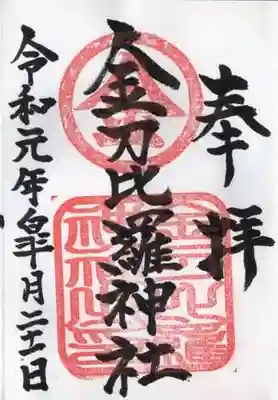 奉拝
金刀比羅神社
令和元年皐月二十一日